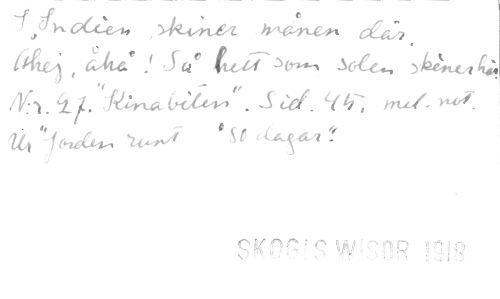 I Indien skiner månen där,
Ohej, åhå! Så hett som solen skiner här.
N:r. 27. "Kinabiten". Sid. 45. mel. not.
Ur "Jorden runt "80 dagar".
SKOGIS WISOR 1918